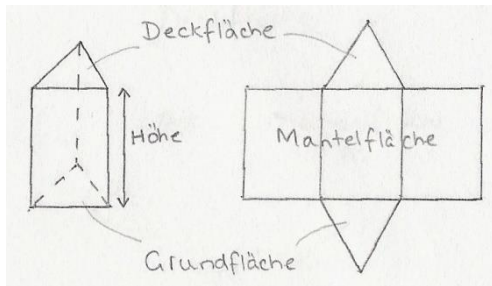 Deckfläche
Höhe
Mantelfläche
Grundfläche